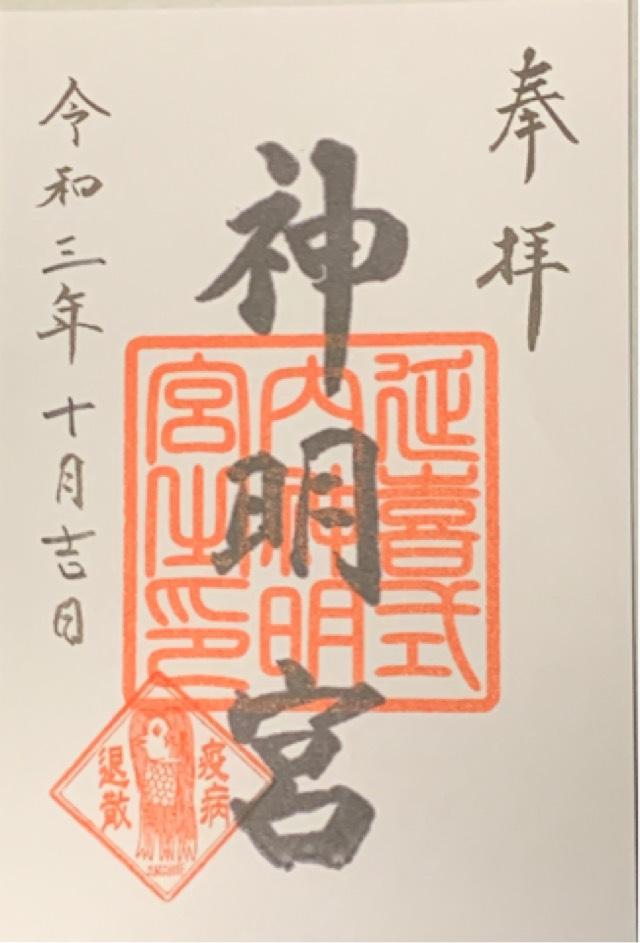 奉拝
神明宮
延喜式
内神明
宮之印
令和三年十月吉日
疫病
退散